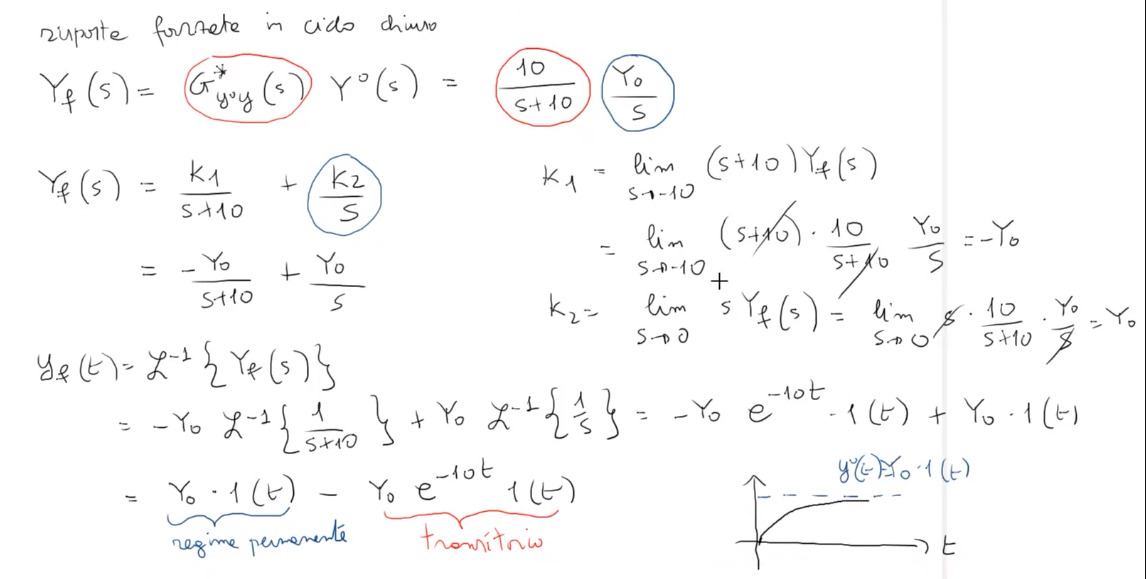 risposte forzate in ciclo chiuso
Y_f(s) = G*_{y°y}(s) Y°(s) = 10/(s+10) Y_0/s
Y_f(s) = K1/(s+10) + K2/s
= -Y_0/(s+10) + Y_0/s
K_1 = lim_{s→-10} (s+10) Y_f(s)
= lim_{s→-10} (s+10) · 10/(s+10) Y_0/s = -Y_0
K_2 = lim_{s→0} s Y_f(s) = lim_{s→0} s · 10/(s+10) · Y_0/s = Y_0
y_f(t) = ℒ^{-1} { Y_f(s) }
= -Y_0 ℒ^{-1} { 1/(s+10) } + Y_0 ℒ^{-1} { 1/s } = -Y_0 e^{-10t} · 1(t) + Y_0 · 1(t)
= Y_0 · 1(t) - Y_0 e^{-10t} 1(t)
regime permanente
transitorio
y°(t)=Y_0 · 1(t)
t